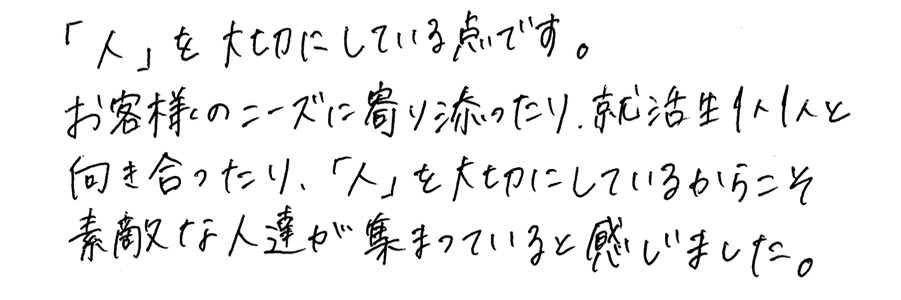 「人」を大切にしている点です。
お客様のニーズに寄り添ったり、就活生1人1人と
向き合ったり、「人」を大切にしているからこそ
素敵な人達が集まっていると感じました。